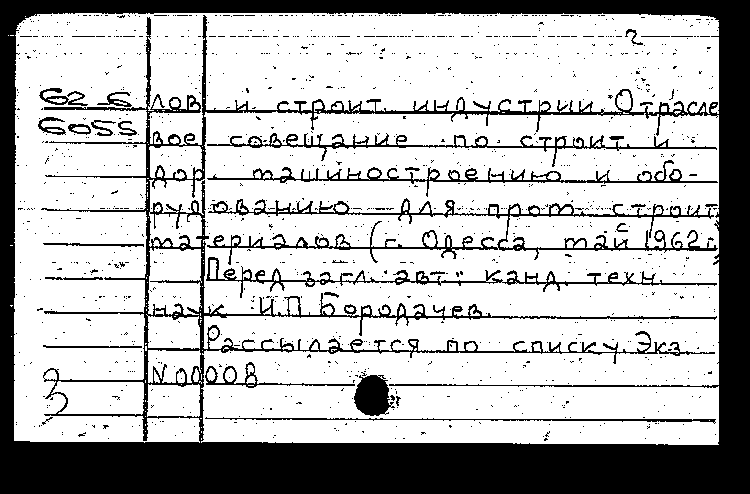 2
62-6 лов. и строит. индустрии. Отрасле
6055 вое совещание по строит. и
дор. машиностроению и обо-
рудованию для пром. строит.
материалов (г. Одесса, май 1962г.
Перед загл. авт: канд. техн.
наук И.П. Бородачев.
Рассылается по списку. Экз.
N 00008
3